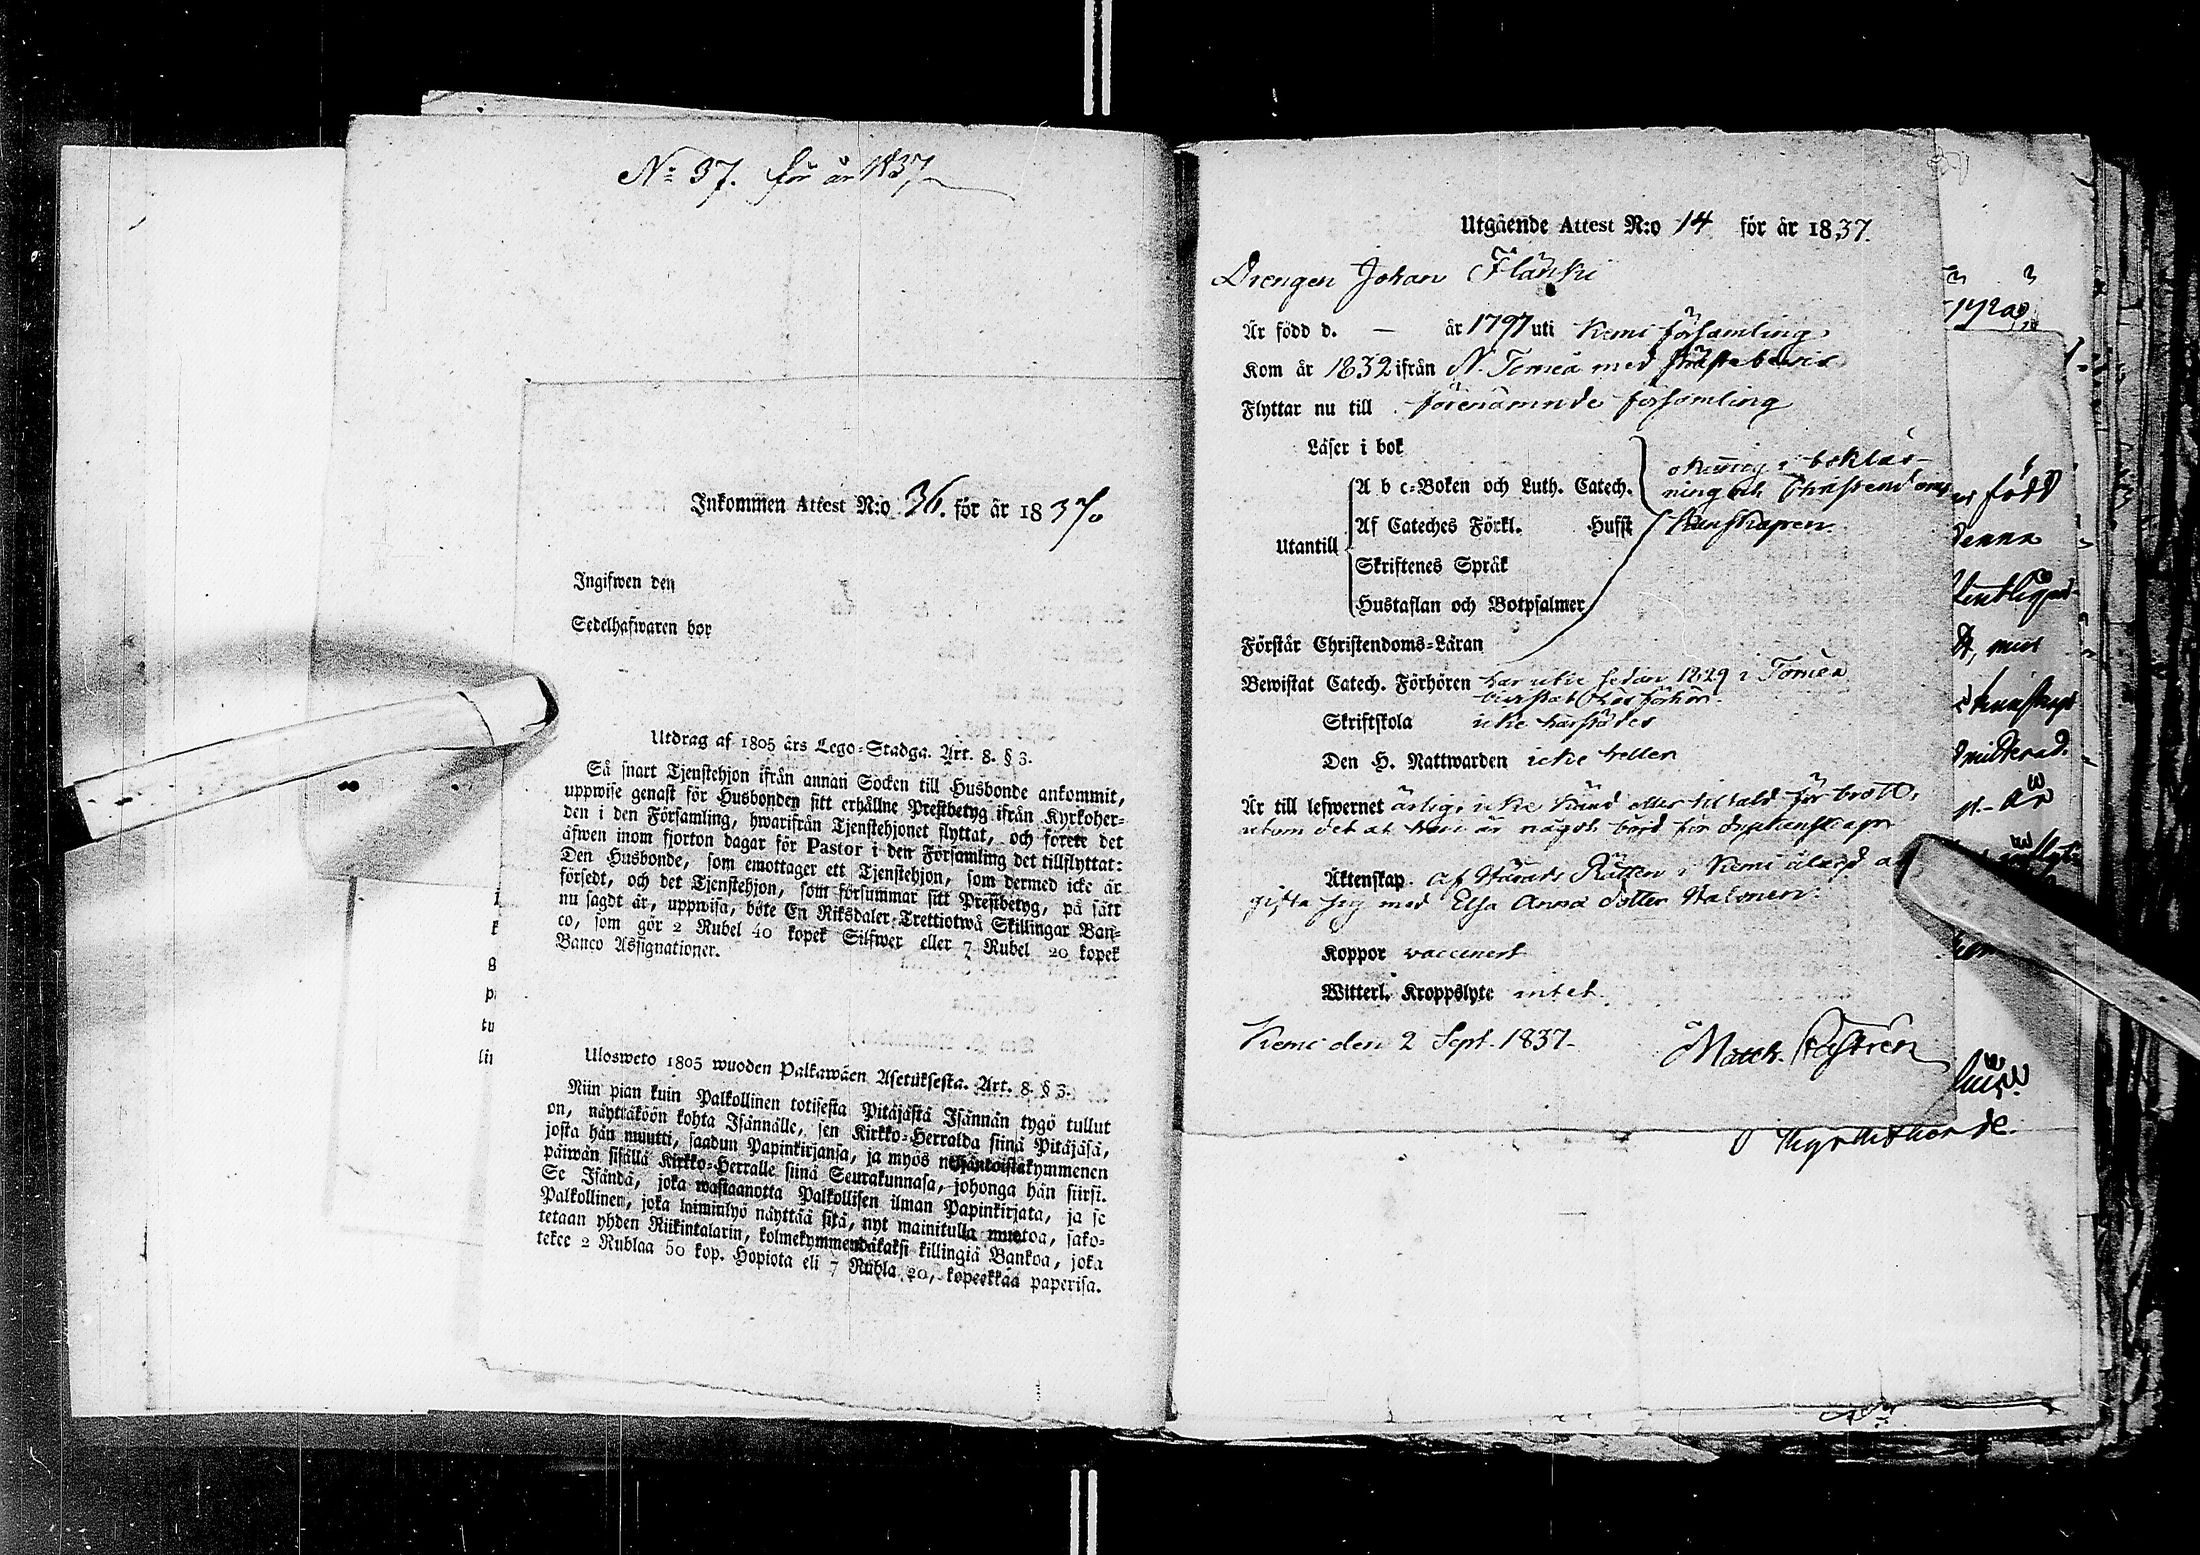 No 37. för år 1837
Inkommen Attest N:o 36. för år 1837.
Ingifwen den
Sedelhafwaren bor
Utdrag af 1805 års Lego-Stadga. Art. 8. § 3.
Så snart Tjenstehjon ifrån annan Socken till Husbonde ankommit,
uppwise genast för Husbonden sitt erhållne Prestbetyg ifrån Kyrkoher-
den i den Församling, hwarifrån Tjenstehjonet flyttat, och förete det
äfwen inom fjorton dagar för Pastor i den Församling det tillflyttat:
Den Husbonde, som emottager ett Tjenstehjon, som dermed icke är
försedt, och det Tjenstehjon, som försummar sitt Prestbetyg, på sätt
nu sagdt är, uppwisa, böte En Riksdaler Trettiotwå Skillingar Ban-
co, som gör 2 Rubel 40 kopek Silfwer eller 7 Rubel 20 kopek
Banco Assignationer.
Ulosweto 1805 wuoden Palkawäen Asetuksesta. Art. 8. § 3.
Niin pian kuin Palkollinen toisesta Pitäjästä Isännän tygö tullut
on, näyttäköön kohta Isännälle, sen Kirkko-Herralda siinä Pitäjäsä,
josta hän muutti, saadun Papinkirjansa, ja myös neljäntoistakymmenen
päiwän sisällä Kirkko-Herralle siinä Seurakunnasa, johonga hän siirsi.
Se Isändä, joka wastaanotta Palkollisen ilman Papinkirjata, ja se
Palkollinen, joka laiminlyö näyttää sitä, nyt mainitulla muotoa, sako-
tetaan yhden Riikintalarin, kolmekymmendäkaksi killingiä Bankoa, joka
tekee 2 Rublaa 50 kop. Hopiota eli 7 Rubla 20, kopeekkaa paperisa.
Utgående Attest N:o 14 för år 1837.
Drengen Johan Flänki
Är född d. — år 1797 uti Kemi församling
Kom år 1832 ifrån N. Torneå med
Flyttar nu till förenämnde församling
Läser i bok
A b c-Boken och Luth. Catech. okunnig i bokläs-
ning och Christendoms
Utantill Af Cateches Förkl. Husst kunskapen.
Skriftenes Språk
Hustaflan och Botpsalmer
Förstår Christendoms-Läran
Bewistat Catech. Förhören har icke sedan 1829 i Torneå
bevistat Läsförhör.
Skriftskola icke härstädes
Den H. Nattwarden icke heller
Är till lefwernet ärlig, icke känd eller tiltald för brott,
utom det at han är något böjd för dryckenskap
Äktenskap. af Härads Rätten i Kemi ålagd at
gifta sig med Elsa Anna dotter Halonen.
Koppor vaccinerat
Witterl. Kroppslyte intet.
Kemi den 2 Sept. 1837.
Matth. Castrén
född
denna